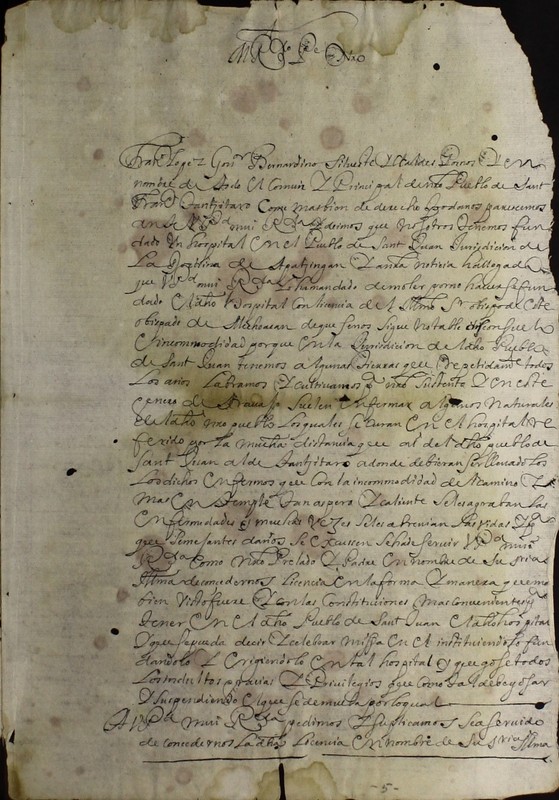 M R.do P.e N.ro
Fran.co Lopez Gou.or Bernardino Siluestre Alcaldes Ponos Y en
nombre de todo el Comun Y Principal de nro Pueblo de Sant
Fran.co tantzitaro Como mas bien de derecho
ante V. P.d mui R.da Y decimos que nosotros tenemos fun
dado Vn hospital en el Pueblo de Sant Juan Jurisdicion de
La Doctrina de Apatzingan Y a nra noticia ha llegado
que V. P.d mui R.da ha mandado demoler por no hauerse fun
dado el dho hospital con licencia de el Illmo S.r obispo de este
obispado de Mechoacan de que se nos sigue notable desconsuelo
e incommodidad porque en la Jurisdicion de dho Pueblo
de Sant Juan tenemos algunas tierras que Repetidam.te todos
Los años Labramos Y cultiuamos p.a nro sustento Y en este
suelen enfermar algunos Naturales
de dho nro pueblo Los quales se curan en el hospital Re
ferido por La mucha distancia que ai del dho pueblo de
Sant Juan al de tantzitaro adonde debieran ser lleuados los
Los dichos enfermos que con la incommodidad de el camino Y
mas en temple tan aspero Y caliente se les agraban las
enfermedades Y muchas Vezes se les abreuian las vidas Y p.a
que semejantes daños se escusen se ha de seruir V. P.d mui
R.da como nro Prelado Y Padre en nombre de Su sria
Illma de concedernos Licencia en la forma Y manera que mas
bien Visto fuere Y en las Constituciones mas conuenientes
tener en el dho Pueblo de Sant Juan el dho hospital
Y que se pueda decir Y celebrar missa en el instituiendolo fun
dandolo Y erigiendolo en tal hospital Y que gose todos
Los indultos gracias Y Priuilegios que como tal debe gosar
Y suspendiendo el que se demuela por lo qual
A V. P.d mui R.da pedimos Y suplicamos sea seruido
de concedernos la dha Licencia en nombre de Su sria Illma
-5-